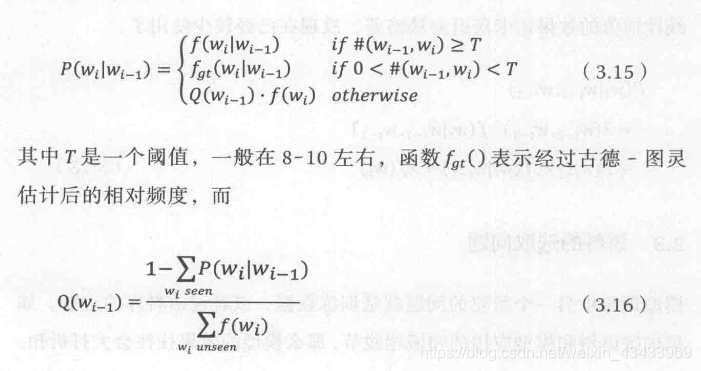 P(w_i|w_{i-1}) = { f(w_i|w_{i-1}) if #(w_{i-1}, w_i) ≥ T
f_{gt}(w_i|w_{i-1}) if 0 < #(w_{i-1}, w_i) < T (3.15)
Q(w_{i-1}) · f(w_i) otherwise
其中 T 是一个阈值，一般在 8-10 左右，函数 f_{gt}() 表示经过古德 - 图灵
估计后的相对频度，而
1-∑P(w_i|w_{i-1})
w_i seen
Q(w_{i-1}) = (3.16)
∑f(w_i)
w_i unseen
https://blog.csdn.net/weixin_43493969